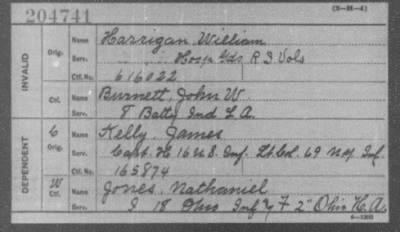 204741
(3-35-4)
INVALID
Orig. Name Harrigan William
Serv. Hosp Gds R I Vols
Ctf. No. 616022
Ctf. Name Burnett, John W
Serv. 8 Batty Ind L A.
DEPENDENT
C Orig. Name Kelly, James
Serv. Capt. H 16 U S. Inf. Lt Col. 69 N.Y. Inf.
Ctf. No. 165874
W Ctf. Name Jones, Nathaniel
Serv. I 18 Ohio Inf & F 2" Ohio H. A.